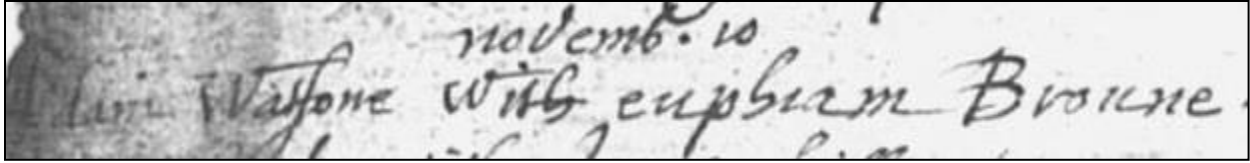 novemb. 10
Watsone with euphiam Broune